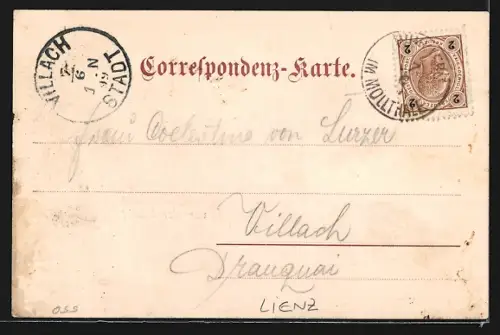 VILLACH STADT
Correspondenz-Karte.
IM MÖLLTHALE
2 2
Frau Coelestine von Lurzer
Villach
Drauquai
LIENZ